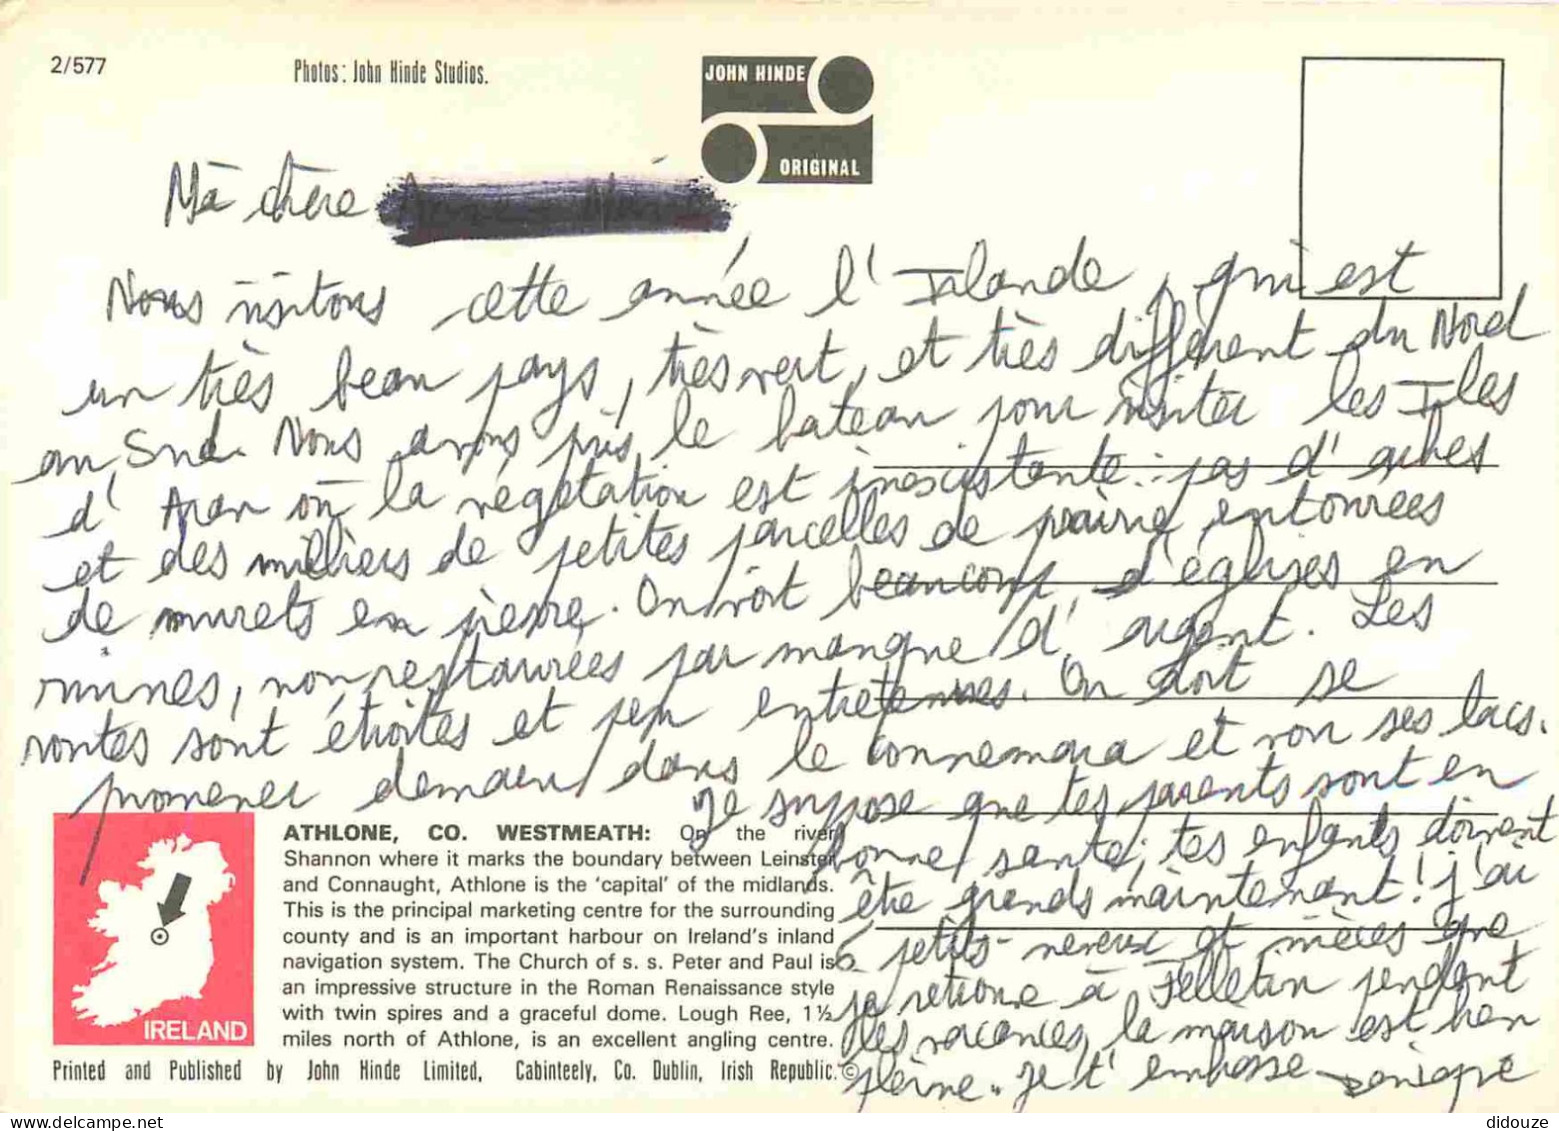 2/577
Photos: John Hinde Studios.
JOHN HINDE
ORIGINAL
Mà chère
Nous visitons cette année l'Irlande, qui est
un très beau pays, très vert, et très différent du Nord
au Sud. Nous avons pris le bateau pour visiter les Iles
d'Aran où la végétation est inexistante : pas d'arbres
et des milliers de petites parcelles de prairie entourées
de murets en pierre. On voit beaucoup d'églises en
ruines, non restaurées par manque d'argent. Les
routes sont étroites et peu entretenues. On doit se
promener demain dans le Connemara et voir ses lacs.
Je suppose que tes parents sont en
bonne santé, tes enfants doivent
être grands maintenant ! j'ai
6 petits-neveux et nièces que
je retrouve à Felletin pendant
les vacances, la maison est bien
pleine. Je t'embrasse
ATHLONE, CO. WESTMEATH: On the river
Shannon where it marks the boundary between Leinster
and Connaught, Athlone is the 'capital' of the midlands.
This is the principal marketing centre for the surrounding
county and is an important harbour on Ireland's inland
navigation system. The Church of s. s. Peter and Paul is
an impressive structure in the Roman Renaissance style
with twin spires and a graceful dome. Lough Ree, 1½
miles north of Athlone, is an excellent angling centre.
IRELAND
Printed and Published by John Hinde Limited, Cabinteely, Co. Dublin, Irish Republic. ©
didouze